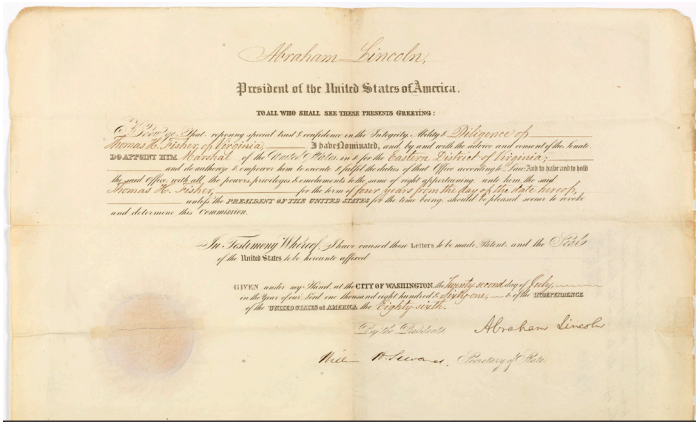 Abraham Lincoln,
President of the United States of America.
TO ALL WHO SHALL SEE THESE PRESENTS GREETING:
Know ye, That reposing special trust & confidence in the Integrity, Ability & Diligence of
Thomas H. Fisher of Virginia, I have Nominated, and by and with the advice and consent of the Senate
DO APPOINT HIM Marshal of the United States in & for the Eastern District of Virginia,
and do authorize & empower him to execute & fulfil the duties of that Office according to Law: And to have and to hold
the said Office with all the powers privileges & emoluments to the same of right appertaining unto him the said
Thomas H. Fisher, for the term of four years from the day of the date hereof,
unless the PRESIDENT OF THE UNITED STATES for the time being should be pleased sooner to revoke
and determine this Commission.
In Testimony Whereof, I have caused these Letters to be made Patent, and the Seal
of the United States to be hereunto affixed
GIVEN under my Hand at the CITY OF WASHINGTON, the Twenty second day of July
in the Year of our Lord one thousand eight hundred & sixty one, & of the INDEPENDENCE
OF THE UNITED STATES OF AMERICA, the Eighty sixth.
By the President Abraham Lincoln
William H. Seward, Secretary of State.